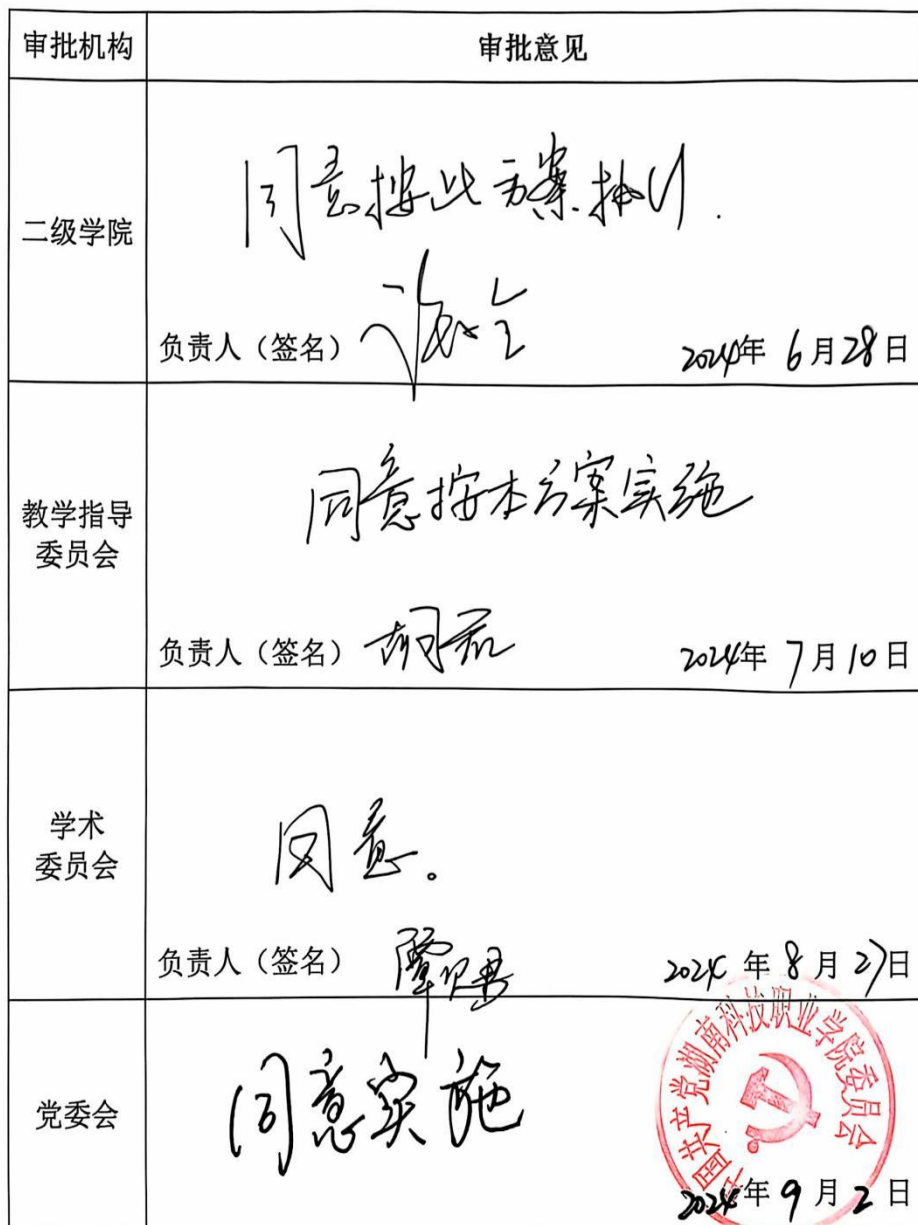 审批机构 审批意见
同意按此方案执行.
二级学院
负责人（签名） 2024年 6月28日
同意按本方案实施
教学指导
委员会
负责人（签名） 2024年 7月10日
学术
委员会
同意。
负责人（签名） 2024年 8月27日
党委会
同意实施
中国共产党湖南科技职业学院委员会
2024年 9月 2日